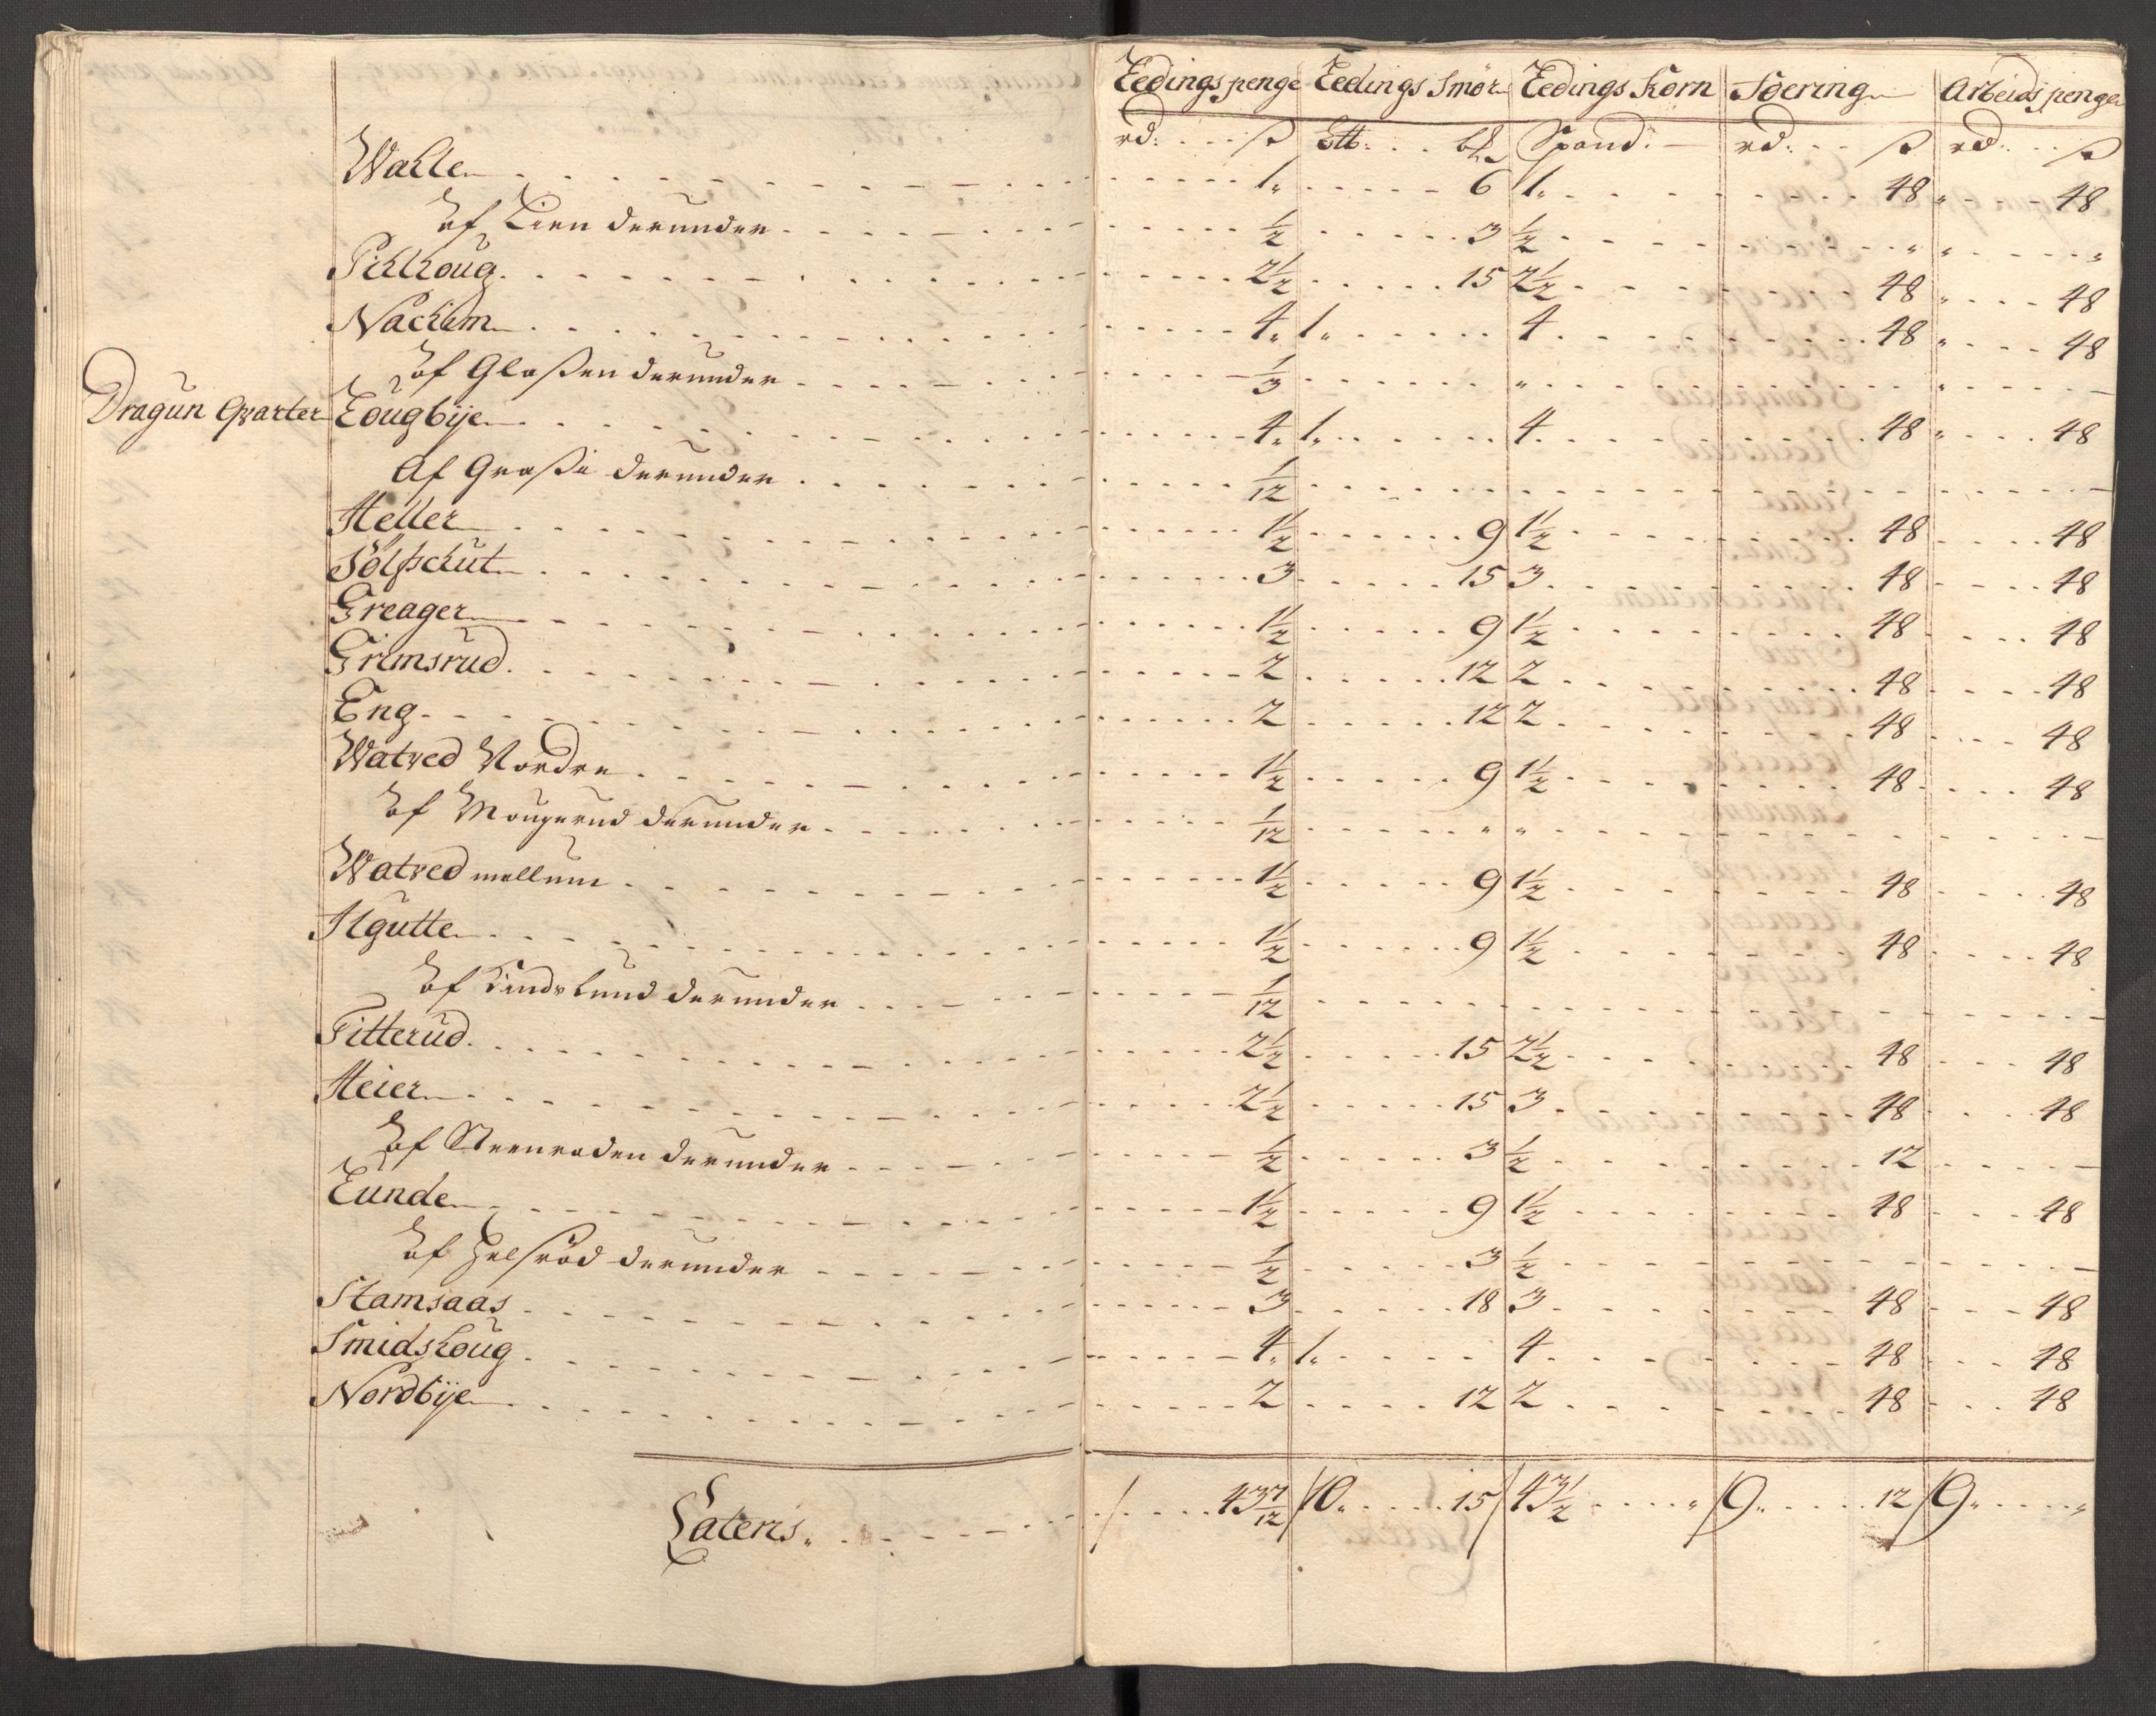 Leedings penge Leedings Smör Leedings Korn Foering Arbeids penge
rd: ß Ltt: Spand: rd: ß rd: ß
Walle 1„ 6 1„ 48 „ 48
Af Lien derunder ½ 3 ½ „ „ „
Pihlhoug 2½ 15 2½ 48 „ 48
Nachim 4„ 1„ 4 48 „ 48
Af Glaßen derunder ⅓ „ „
Dragun Qvarter Lougbÿe 4„ 1„ 4 48 „ 48
Af Graßi derunder 1/12
Heller 1½ 9 1½ 48 48
Sölfschut 3 15 3 48 48
Greager 1½ 9 1½ 48 48
Grimsrud 2 12 2 48 48
Eng 2 12 2 48 48
Watved Nordre 1½ 9 1½ 48 48
Af Mougerud derunder 1/12 „ „
Watved mellum 1½ 9 1½ 48 48
Hgutte 1½ 9 1½ 48 48
Af Lindslund derunder 1/12
Titterud 2½ 15 2½ 48 48
Heier 2½ 15 3 48 48
Af Steenroden derunder ½ 3 ½ 12
Lunde 1½ 9 1½ 48 48
Af Helsröd derunder ½ 3 ½
Stamsaas 3 18 3 48 48
Smidshoug 4„ 1„ 4 48 48
Nordbÿe 2 12 2 48 48
Lateris„ 43 7/12 10„ 15 43½ „ 9„ 12 9„ „